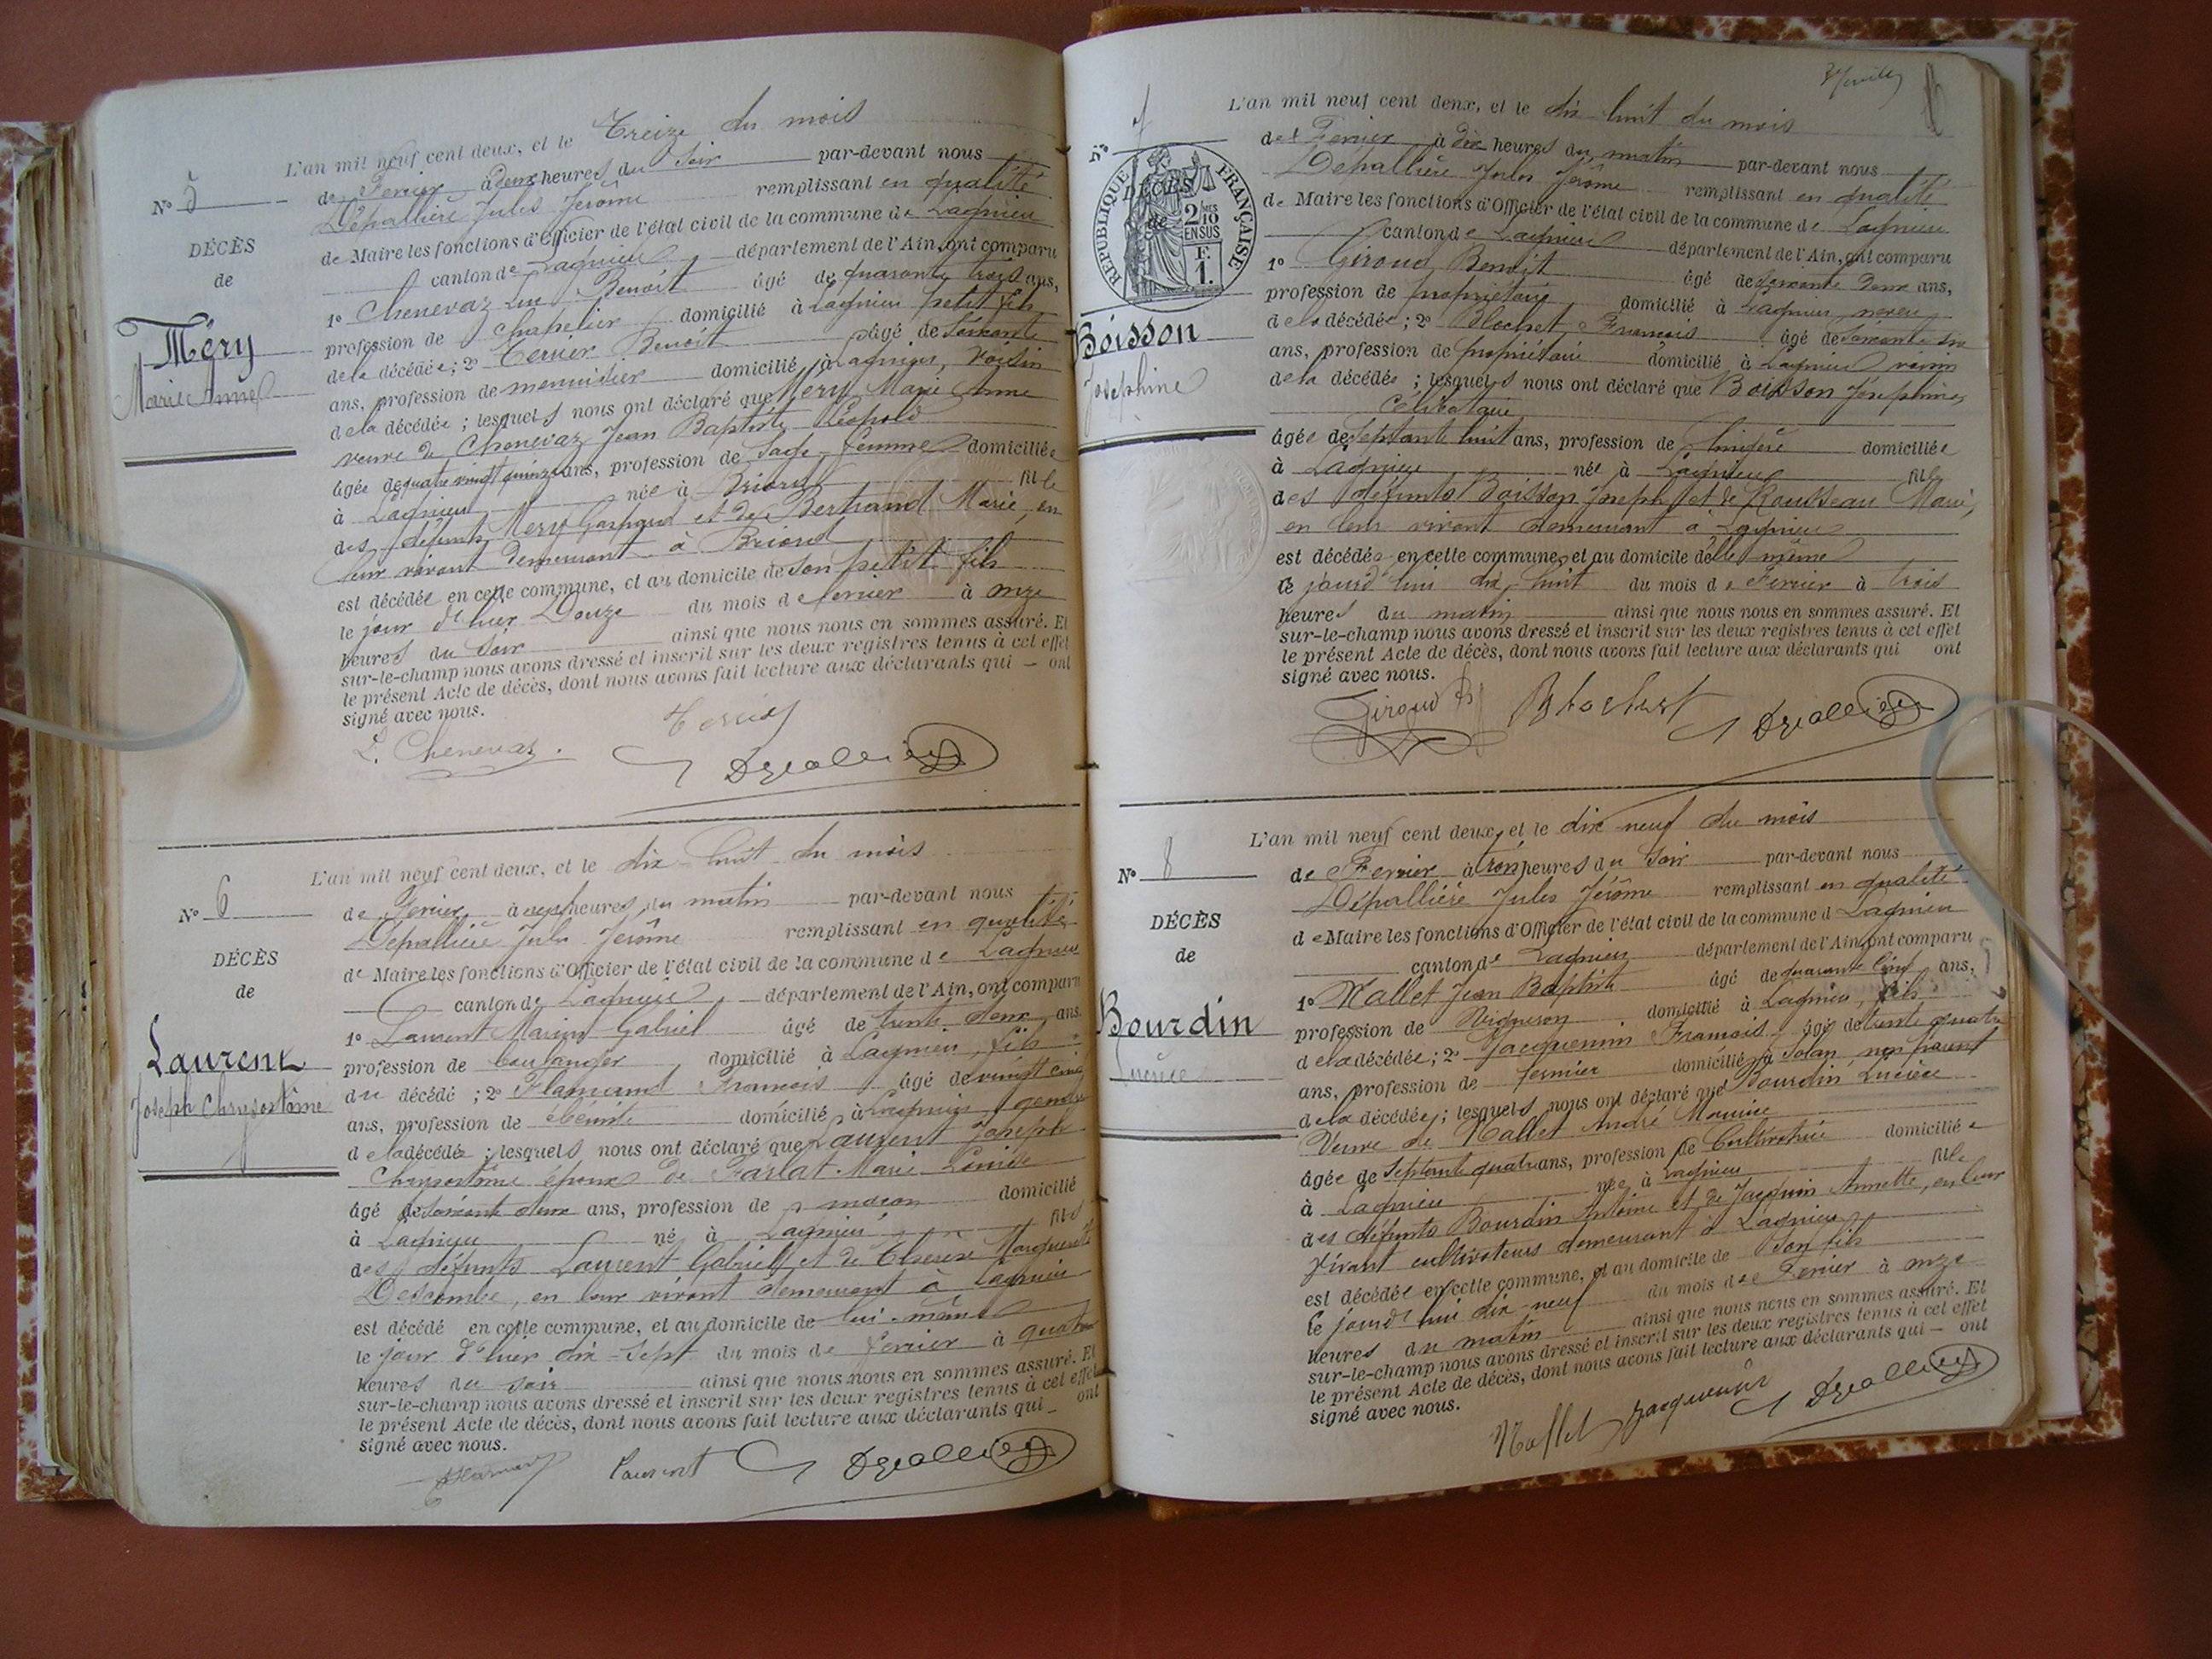 L'an mil neuf cent deux, et le Treize du mois
de Fevrier à deux heures du Soir par-devant nous
Dépallière Jules Jérôme remplissant en qualité
de Maire les fonctions d'Officier de l'état civil de la commune de Lagnieu
canton de Lagnieu département de l'Ain, ont comparu
1° Chenevaz Luc Benoit âgé de quarante trois ans,
profession de Chapelier domicilié à Lagnieu petit fils
de la décédée ; 2° Tervier Benoit âgé de Soixante
ans, profession de menuisier domicilié à Lagnieu, Voisin
de la décédée ; lesquels nous ont déclaré que Mery Marie Anne
veuve de Chenevaz Jean Baptiste Léopold
âgée de quatre vingt quinze ans, profession de Sage-femme domiciliée
à Lagnieu née à Briord fille
des défunts Mery Gaspard et de Bertrand Marie, en
leur vivant demeurant à Briord
est décédée en cette commune, et au domicile de son petit fils
le jour d'hier Douze du mois de fevrier à onze
heures du Soir ainsi que nous nous en sommes assuré. Et
sur-le-champ nous avons dressé et inscrit sur les deux registres tenus à cet effet
le présent Acte de décès, dont nous avons fait lecture aux déclarants qui – ont
signé avec nous.
L. Chenevaz.
N° 5
DÉCÈS
de
Méry
Marie Anne
L'an mil neuf cent deux, et le dix-huit du mois
de Fevrier à heures du matin par-devant nous
Dépallière Jules Jérôme remplissant en qualité
de Maire les fonctions d'Officier de l'état civil de la commune de Lagnieu
canton de Lagnieu département de l'Ain, ont comparu
1° Laurent Marius Gabriel âgé de trente deux ans.
profession de boulanger domicilié à Lagnieu, fils
du décédé ; 2° Flamand Francois âgé de vingt cinq
ans, profession de domicilié à Lagnieu gendre
de la décédée ; lesquels nous ont déclaré que Laurent Joseph
Chrysostôme époux de Farlat Marie Louise
âgé de Soixante deux ans, profession de maçon domicilié
à Lagnieu né à Lagnieu fils
des défunts Laurent Gabriel et de Thérèse Marguerite
Descombe, en leur vivant demeurant à Lagnieu
est décédé en cette commune, et au domicile de lui-même
le jour d'hier dix-sept du mois de fevrier à quatre
heures du soir ainsi que nous nous en sommes assuré. Et
sur-le-champ nous avons dressé et inscrit sur les deux registres tenus à cet effet
le présent Acte de décès, dont nous avons fait lecture aux déclarants qui – ont
signé avec nous.
Laurent
N° 6
DÉCÈS
de
Laurent
Joseph Chrysostôme
L'an mil neuf cent deux, et le dix huit du mois
de Fevrier à dix heures du matin par-devant nous
Dépallière Jules Jérôme remplissant en qualité
de Maire les fonctions d'Officier de l'état civil de la commune de Lagnieu
canton de Lagnieu département de l'Ain, ont comparu
1° Giroud Benoit âgé de Soixante deux ans,
profession de propriétaire domicilié à Lagnieu, neveu
de la décédée ; 2° Blochet Francois âgé de Soixante six
ans, profession de propriétaire domicilié à Lagnieu voisin
de la décédée ; lesquels nous ont déclaré que Boisson Joséphine,
Célibataire
âgée de Septante huit ans, profession de lingère domiciliée
à Lagnieu née à Lagnieu fille
des défunts Boisson Joseph et de Rousseau Marie,
en leur vivant demeurant à Lagnieu
est décédée en cette commune, et au domicile d'elle même
ce jourd'hui dix huit du mois de Fevrier à trois
heures du matin ainsi que nous nous en sommes assuré. Et
sur-le-champ nous avons dressé et inscrit sur les deux registres tenus à cet effet
le présent Acte de décès, dont nous avons fait lecture aux déclarants qui ont
signé avec nous.
Giroud B Blochet
N° 7
RÉPUBLIQUE FRANÇAISE
2/10 EN SUS
F. 1.
DÉCÈS
de
Boisson
Joséphine
L'an mil neuf cent deux, et le dix neuf du mois
de Fevrier à trois heures du Soir par-devant nous
Dépallière Jules Jérôme remplissant en qualité
de Maire les fonctions d'Officier de l'état civil de la commune d Lagnieu
canton de Lagnieu département de l'Ain, ont comparu
1° Mallet Jean Baptiste âgé de quarante cinq ans,
profession de Vigneron domicilié à Lagnieu, fils
de la décédée ; 2° Jacquemin Francois âgé de trente quatre
ans, profession de fermier domicilié à non parent
de la décédée ; lesquels nous ont déclaré que Bourdin Lucrèce
Veuve de Mallet André Maurice
âgée de Septante quatre ans, profession de Cultivatrice domiciliée
à Lagnieu née à Lagnieu fille
des défunts Bourdin Antoine et de Jacquin Annette, en leur
vivant cultivateurs demeurant à Lagnieu
est décédée en cette commune, et au domicile de Son fils
le jourd'hui dix-neuf du mois de Fevrier à onze
heures du matin ainsi que nous nous en sommes assuré. Et
sur-le-champ nous avons dressé et inscrit sur les deux registres tenus à cet effet
le présent Acte de décès, dont nous avons fait lecture aux déclarants qui – ont
signé avec nous.
Mallet Jacquemin
N° 8
DÉCÈS
de
Bourdin
Lucrèce